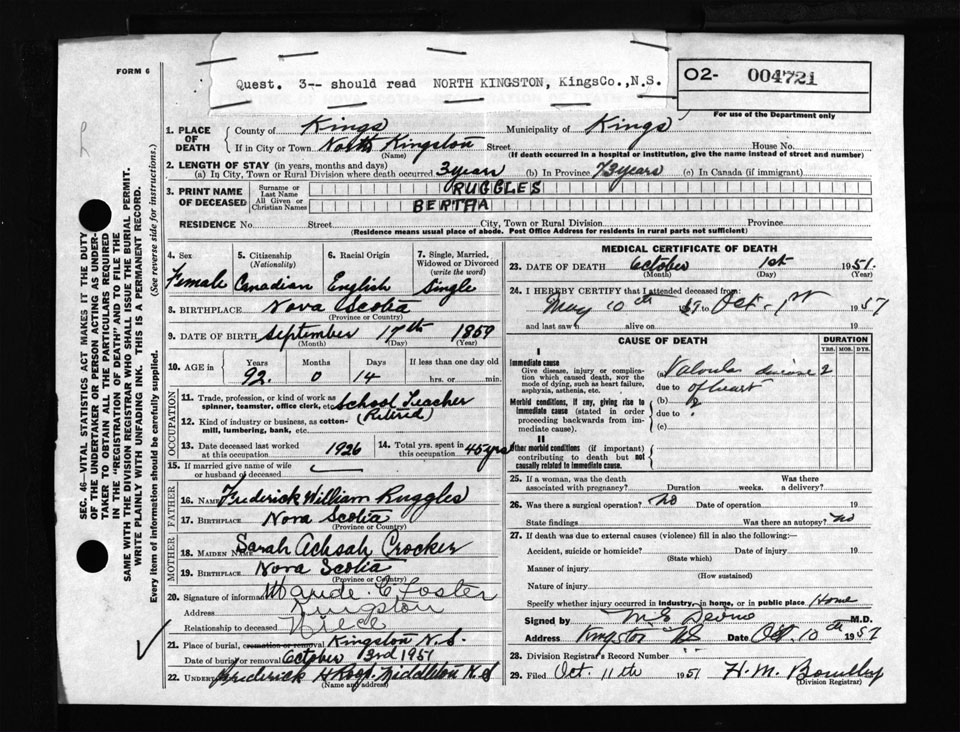 FORM 6
Quest. 3-- should read NORTH KINGSTON, KingsCo.,N.S.
O2- 004721
For use of the Department only
1. PLACE OF DEATH
County of Kings Municipality of Kings
If in City or Town North Kingston Street House No.
(Name) (If death occurred in a hospital or institution, give the name instead of street and number)
2. LENGTH OF STAY (in years, months and days)
(a) In City, Town or Rural Division where death occurred 3 years (b) In Province 73 years (c) In Canada (if immigrant)
3. PRINT NAME OF DECEASED
Surname or Last Name RUGGLES
All Given or Christian Names BERTHA
RESIDENCE No. Street City, Town or Rural Division Province
(Residence means usual place of abode. Post Office Address for residents in rural parts not sufficient)
4. Sex Female
5. Citizenship (Nationality) Canadian
6. Racial Origin English
7. Single, Married, Widowed or Divorced (write the word) Single
8. BIRTHPLACE Nova Scotia
(Province or Country)
9. DATE OF BIRTH September 17th 1859
(Month) (Day) (Year)
10. AGE in Years Months Days If less than one day old
92. 0 14 hrs. or min.
OCCUPATION
11. Trade, profession, or kind of work as spinner, teamster, office clerk, etc. School Teacher
(Retired)
12. Kind of industry or business, as cotton-mill, lumbering, bank, etc.
13. Date deceased last worked at this occupation 1926
14. Total yrs. spent in this occupation 45 yrs
15. If married give name of wife or husband of deceased
FATHER
16. NAME Frederick William Ruggles
17. BIRTHPLACE Nova Scotia
(Province or Country)
MOTHER
18. MAIDEN NAME Sarah Achsah Crocker
19. BIRTHPLACE Nova Scotia
(Province or Country)
20. Signature of informant Maude. C. Foster
Address Kingston
Relationship to deceased Niece
21. Place of burial, cremation or removal Kingston N.S.
Date of burial or removal October 3rd 1951
22. UNDERTAKER Frederick H Roop. Middleton N.S
(Name and address)
MEDICAL CERTIFICATE OF DEATH
23. DATE OF DEATH October 1st 1951.
(Month) (Day) (Year)
24. I HEREBY CERTIFY that I attended deceased from:
May 10th to Oct. 1st 1951
and last saw h alive on 19
CAUSE OF DEATH DURATION
YRS. MOS. DYS.
I
Immediate cause
Give disease, injury or complication which caused death, NOT the mode of dying, such as heart failure, asphyxia, asthenia, etc.
(a) Valvular disease 2
due to of heart
Morbid conditions, if any, giving rise to immediate cause (stated in order proceeding backwards from immediate cause).
(b)
due to
(c)
II
Other morbid conditions (if important) contributing to death but not causally related to immediate cause.
25. If a woman, was the death associated with pregnancy? Duration weeks. Was there a delivery?
26. Was there a surgical operation? no Date of operation 19
State findings Was there an autopsy? no
27. If death was due to external causes (violence) fill in also the following:
Accident, suicide or homicide? Date of injury 19
(State which)
Manner of injury
(How sustained)
Nature of injury
Specify whether injury occurred in industry, in home, or in public place Home
Signed by M.D.
Address Kingston NS Date Oct. 10th 1951
28. Division Registrar's Record Number
29. Filed Oct. 11th 1951 H. M.
(Division Registrar)
SEC. 46—VITAL STATISTICS ACT MAKES IT THE DUTY
OF THE UNDERTAKER OR PERSON ACTING AS UNDER-
TAKER TO OBTAIN ALL THE PARTICULARS REQUIRED
IN THE "REGISTRATION OF DEATH" AND TO FILE THE
SAME WITH THE DIVISION REGISTRAR WHO SHALL ISSUE THE BURIAL PERMIT.
WRITE PLAINLY WITH UNFADING INK. THIS IS A PERMANENT RECORD.
Every item of information should be carefully supplied. (See reverse side for instructions.)